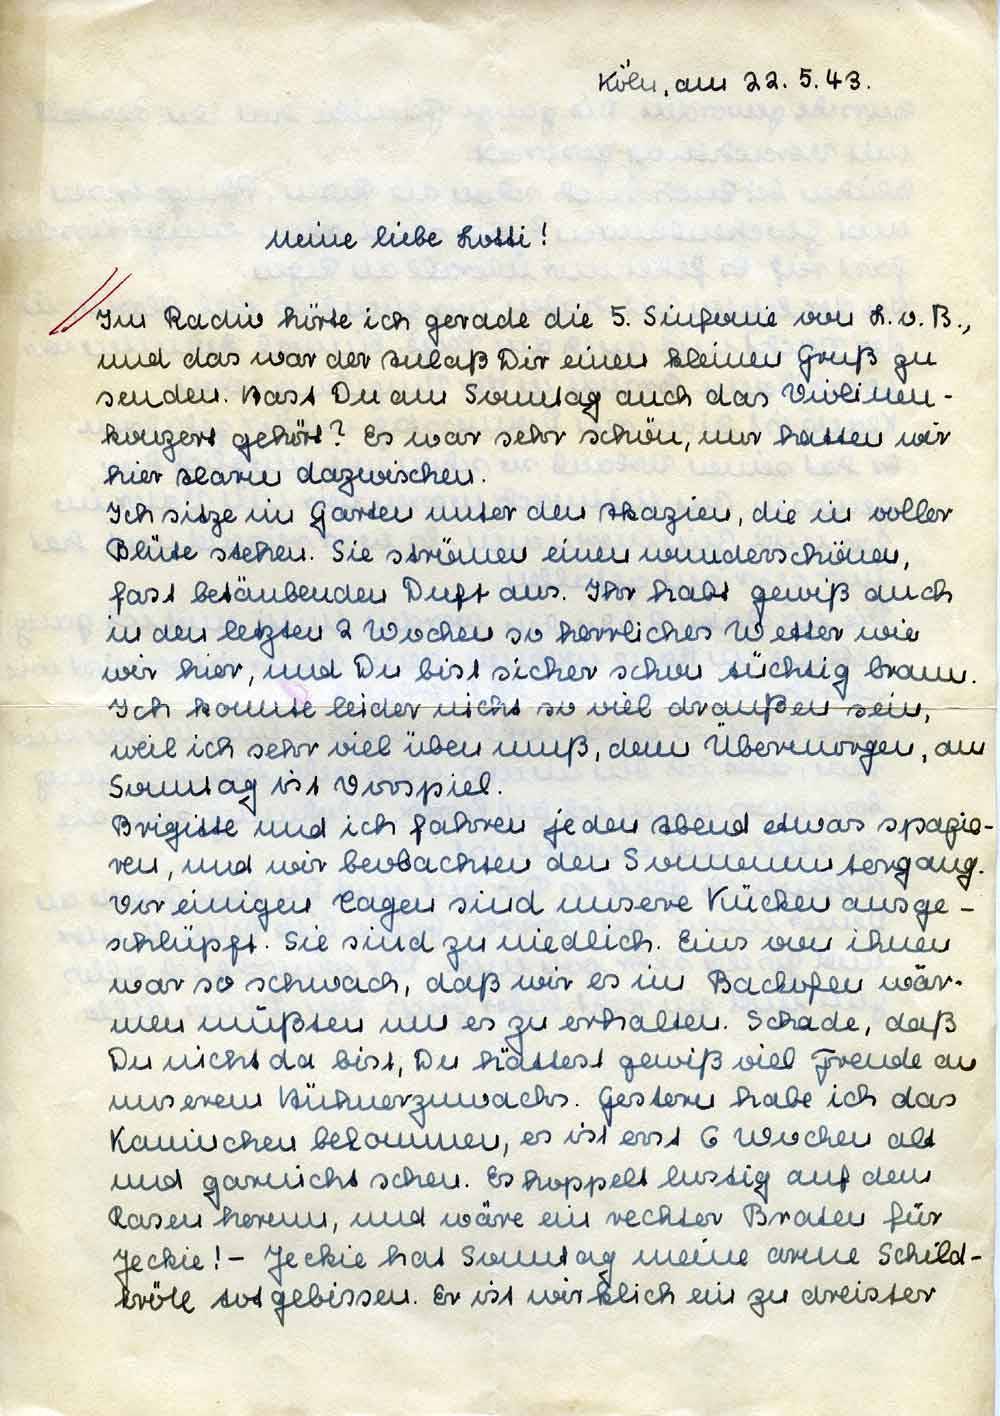 Köln, am 22.5.43.
Meine liebe Lotti!
Im Radio hörte ich gerade die 5. Sinfonie von L.v.B.,
und das war der Anlaß Dir einen kleinen Gruß zu
senden. Hast Du am Sonntag auch das Violinen-
konzert gehört? Es war sehr schön, nur hatten wir
hier Alarm dazwischen.
Ich sitze im Garten unter den Akazien, die in voller
Blüte stehen. Sie strömen einen wunderschönen,
fast betäubenden Duft aus. Ihr habt gewiß auch
in den letzten 2 Wochen so herrliches Wetter wie
wir hier, und Du bist sicher schon tüchtig braun.
Ich konnte leider nicht so viel draußen sein,
weil ich sehr viel üben muß, denn Übermorgen, am
Sonntag ist Vorspiel.
Brigitte und ich fahren jeden Abend etwas spazie-
ren, und wir beobachten den Sonnenuntergang.
Vor einigen Tagen sind unsere Kücken ausge-
schlüpft. Sie sind zu niedlich. Eins von ihnen
war so schwach, daß wir es im Backofen wär-
men müßten um es zu erhalten. Schade, daß
Du nicht da bist, Du hättest gewiß viel Freude an
unserem Hühnerzuwachs. Gestern habe ich das
Kaninchen bekommen, es ist erst 6 Wochen alt
und garnicht scheu. Es hoppelt lustig auf dem
Rasen herum, und wäre ein rechter Braten für
Jeckie! – Jeckie hat Sonntag meine arme Schild-
kröte tot gebissen. Er ist wirklich ein zu dreister